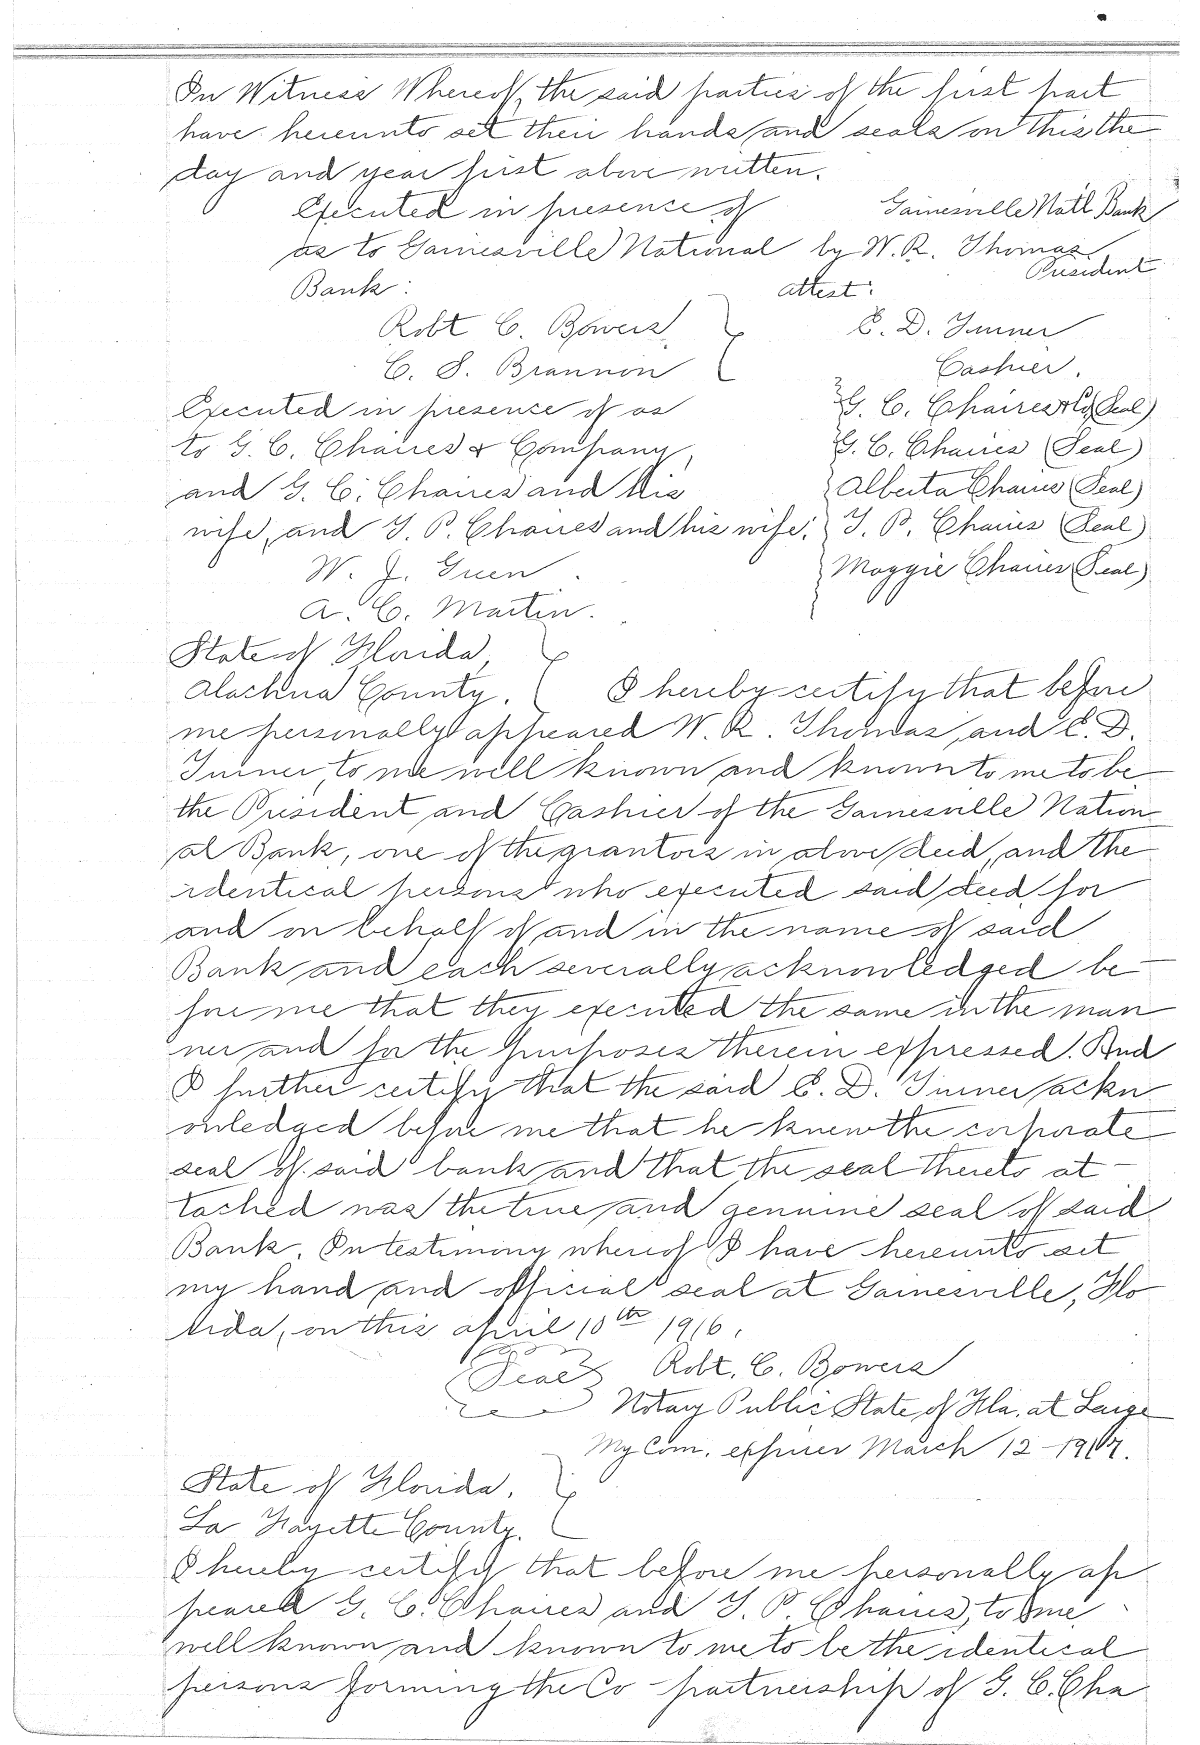 In Witness Whereof, the said parties of the first part
have hereunto set their hands and seals on this the
day and year first above written.
Executed in presence of
Gainesville Nat'l Bank
as to Gainesville National
by W. R. Thomas
President
Bank:
attest:
Robt C. Bowers
E. D. Turner
C. S. Brannon
Cashier.
Executed in presence of as
G. C. Chaires & Co (Seal)
to G. C. Chaires & Company,
G. C. Chaires (Seal)
and G. C. Chaires and his
Alberta Chaires (Seal)
wife, and T. P. Chaires and his wife:
T. P. Chaires (Seal)
W. J. Green
Maggie Chaires (Seal)
A. C. Martin.
State of Florida,
Alachua County.
I hereby certify that before
me personally appeared W. R. Thomas, and E. D.
Turner, to me well known and known to me to be
the President and Cashier of the Gainesville Nation
al Bank, one of the grantors in above deed, and the
identical persons who executed said deed for
and on behalf of and in the name of said
Bank and each severally acknowledged be-
fore me that they executed the same in the man
ner and for the purposes therein expressed. And
I further certify that the said E. D. Turner ackn
owledged before me that he knew the corporate
seal of said bank and that the seal thereto at-
tached was the true and genuine seal of said
Bank. In testimony whereof I have hereunto set
my hand and official seal at Gainesville, Flo
rida, on this april 10th 1916.
(Seal) Robt. C. Bowers
Notary Public State of Fla. at Large
My Com. expires March 12-1917.
State of Florida.
La Fayette County.
I hereby certify that before me personally ap
peared G. C. Chaires and T. P. Chaires, to me
well known and known to me to be the identical
persons forming the Co-partnership of G. C. Cha